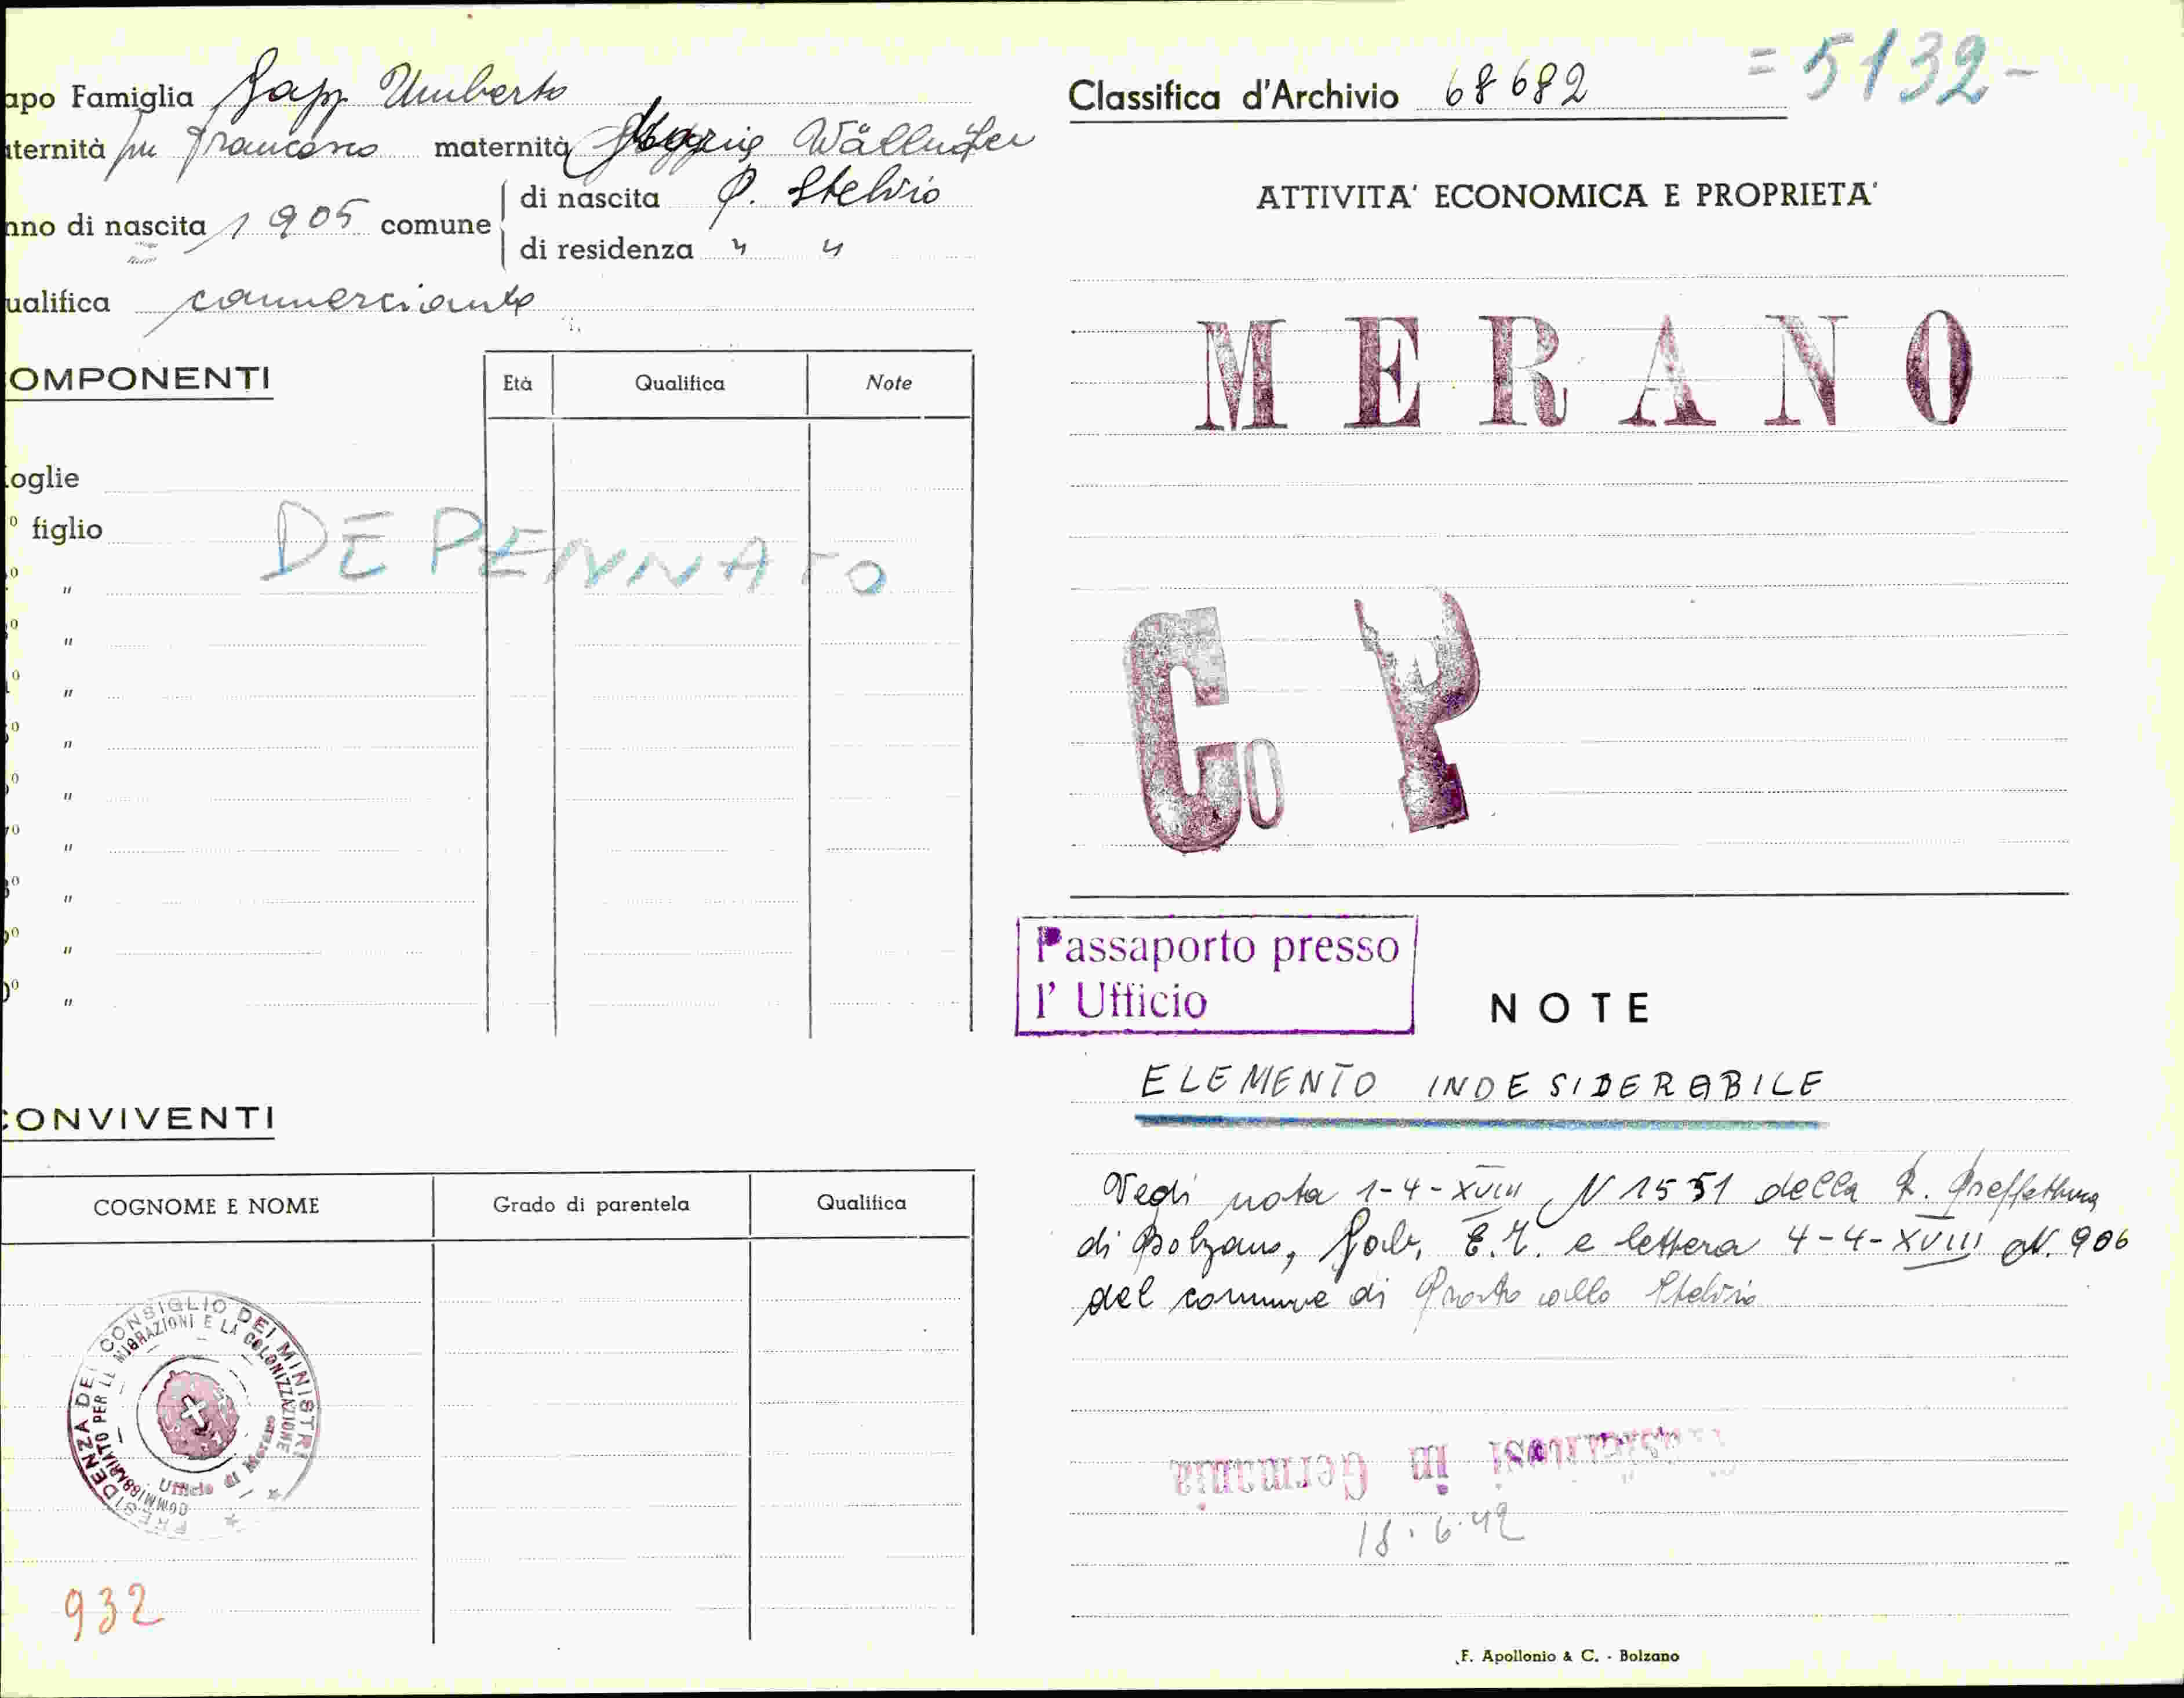 apo Famiglia Gapp Umberto
aternità fu Francesco maternità Maria Wällnöfer
nno di nascita 1905 comune
di nascita P. Stelvio
di residenza " "
ualifica commerciante
OMPONENTI
Età Qualifica Note
oglie
º figlio
DEPENNATO
º "
º "
º "
º "
º "
7º "
8º "
9º "
0º "
CONVIVENTI
COGNOME E NOME Grado di parentela Qualifica
PRESIDENZA DEL CONSIGLIO DEI MINISTRI
COMMISSARIATO PER LE MIGRAZIONI E LA COLONIZZAZIONE
Ufficio di Merano
932
Classifica d'Archivio 68682
= 5132 -
ATTIVITA' ECONOMICA E PROPRIETA'
MERANO
Co P
Passaporto presso
l' Ufficio
NOTE
ELEMENTO INDESIDERABILE
Vedi nota 1-4-XVIII N 1551 della R. Prefettura
di Bolzano, Gab. e lettera 4-4-XVIII N. 906
del comune di Prato allo Stelvio
in Germania
18.6.42
F. Apollonio & C. - Bolzano